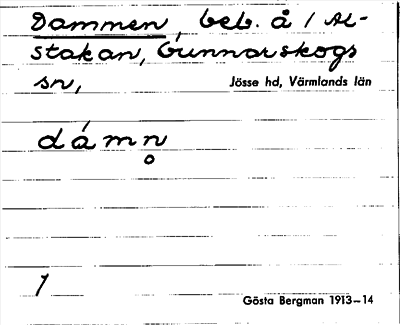 Dammen, beb. å 1 Al-
stakan, Gunnarskogs
sn,
Jösse hd, Värmlands län
dámn̥
1
Gösta Bergman 1913–14